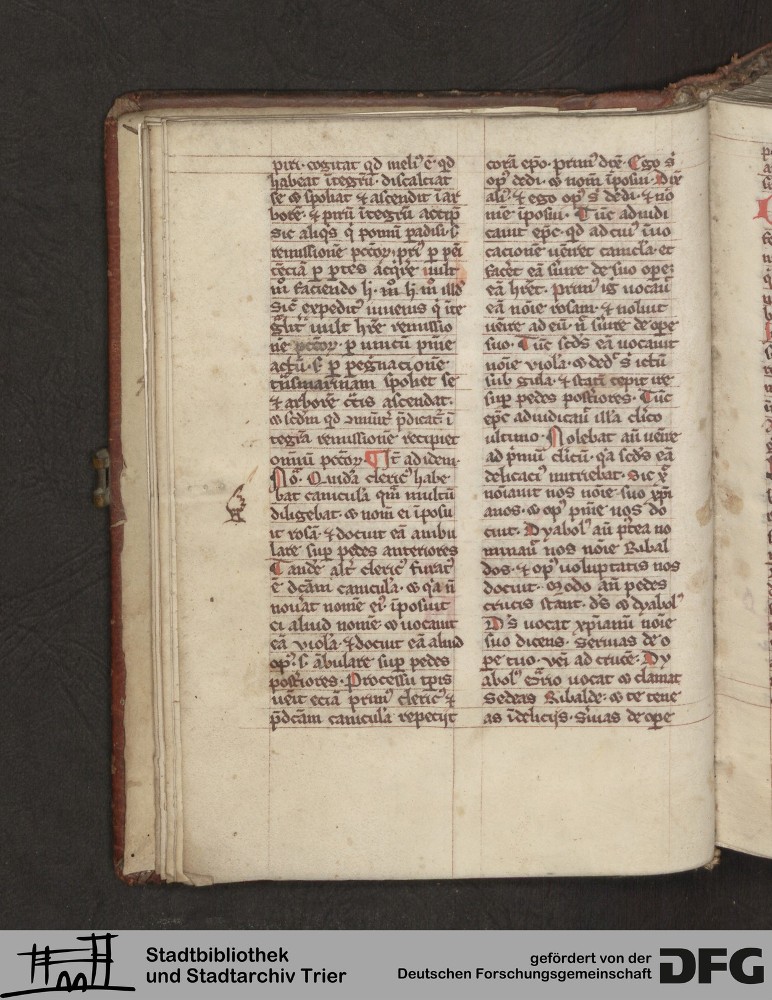 piri. cogitat qd meli᷒ ē qd
habeat ītegrū. discalciat
se ⁊ spoliat & ascendit ī ar
borē. & pirū ītegrū accip̄
Sic aliqs q̄ pomū padisi. s.
remissionē pccōꝝ
tēciā p ptes acq̄re uult
m̄ faciendo h̄. m̄ h̄. m̄ illd
Sic expedit᷒ iuuenis q̄ īte
gᵃlit᷒ uult hr̄e remissio
nē pccōꝝ. p unicū pn̄ie
actū. s. p peg̓nacionē
tᵃnsmarinam spoliet se
& arborē cᵃcis ascendat.
⁊ scdm qd p̄dicat᷒ ī
tegrā remissionē recipiet
omniū pccōꝝ. ¶ It̄ ad idem.
No. Quidā cleric᷒ habe
bat caniculā quā multū
diligebat. ⁊ nom̄ ei īposu
it rosā. & docuit eā ambu
lare sup pedes anteriores
Tandē alt᷒ cleric᷒ furat᷒
ē dcām caniculā. ⁊ qᵃ ī
nouat nomē ei᷒. īposuit
ei aliud nomē. ⁊ uocauit
eā violā. & docuit eā aliud
op᷒. s. ābulare sup pedes
posteriores. Processu tp̄is
uēit eciā prim᷒ cleric᷒ &
p̄dcām caniculā repeciit
corā ep̄o. prim᷒ dix̄. Ego s̓
op᷒ dedi. ⁊ nom̄ īposui. Dix̄
ali᷒. & ego op᷒ s̓ dedi. & no
mē īposui. Tūc adiudi
cauit ep̄c. qd ad cui᷒ īuo
cacionē ueniret canicla. et
facēt eā s̓uire de suo ope.
eā hr̄et. prim᷒ ig̓ uocau̓
eā noīe rosam. & noluit
uēire ad eū. n̄ s̓uire de ope
suo. Tūc scds eā uocauit
noīe viola. ⁊ ded̓ s̓ ictū
sub gula. & statī cepit ire
sup pedes posteriores. Tūc
ep̄c adiudicau̓ illā cl̓ico
ultimo. Nolebat au̓ uēire
ad pᵐū cl̓icū. qᵃ scds eā
delicaci᷒ nutriebat. Sic x̄
nōiauit nos noīe suo xp̄i
anos. ⁊ op᷒ pn̄ie nos do
cuit. Dyabol᷒ au̓ p̄tea no
minau̓ nos noīe Ribal
dos. & op᷒ uoluptatis nos
docuit. Modo an̄ pedes
crucis stant. ds̄ ⁊ dyabol᷒
Ds̄ uocat xp̄ianū noīe
suo dicens. Seruias de o
pe tuo. vēi ad crucē. Dy
abol᷒ ꝯtᵃrio uocat ⁊ clamat
Sedeas Ribalde. ⁊ te tene
as ī delicijs. S̓uias de ope
Stadtbibliothek
und Stadtarchiv Trier
gefördert von der
Deutschen Forschungsgemeinschaft
DFG